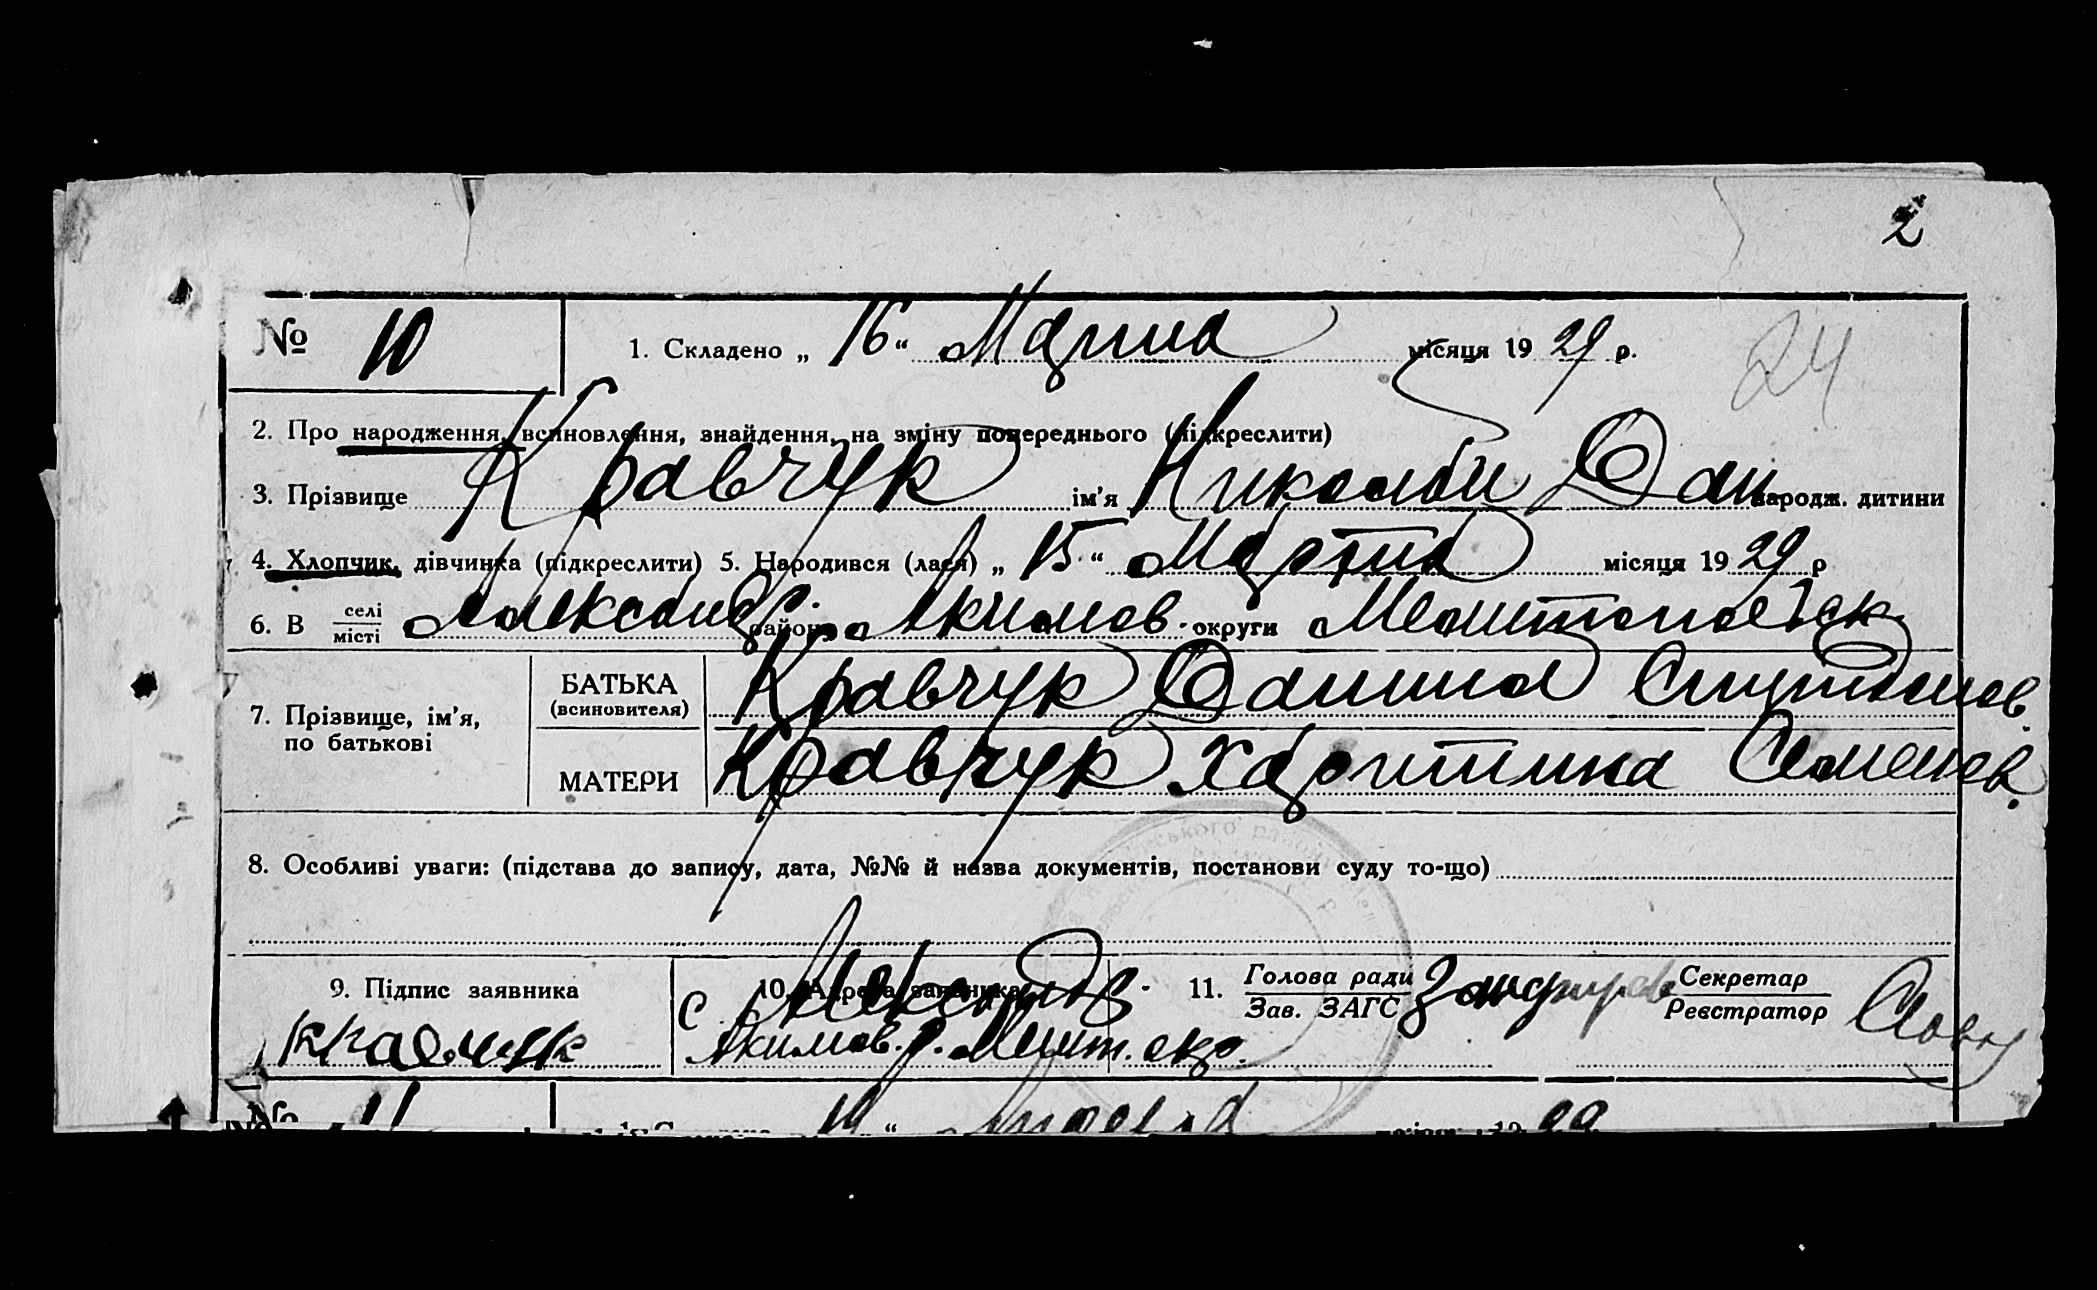 2
№ 10 1. Складено „ 16 “ Марта місяця 19 29 р.
24
2. Про народження, всиновлення, знайдення, на зміну попереднього (підкреслити)
3. Прізвище Кравчук ім’я Николай Дан народж. дитини
4. Хлопчик, дівчинка (підкреслити) 5. Народився (лася) „ 15 “ Марта місяця 19 29 р
6. В селі/місті района Акимов. округи Мелитопольск.
7. Прізвище, ім’я, по батькові
БАТЬКА (всиновителя) Кравчук Данила
МАТЕРИ Кравчук Харитина Семенов.
8. Особливі уваги: (підстава до запису, дата, №№ й назва документів, постанови суду то-що)
9. Підпис заявника 10. Адреса заявника 11. Голова ради/Зав. ЗАГС Секретар/Реєстратор
Кравчук с. Акимов. р. Мелит. окр.
№ 11 29